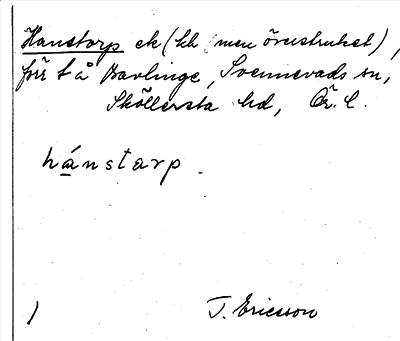 Hanstorp ek (kk men överstruket),
förr t å Bavlinge, Svennevads sn,
Sköllersta hd, Ör. l.
hánstarp.
/ T. Ericsson